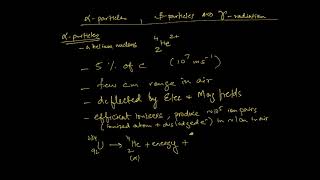 α-particles, β-particles and γ-radiation
α-particles
- a helium nucleus ⁴₂He²⁺
- 5% of c (10⁷ ms⁻¹)
- few cm range in air
- deflected by Elec & Mag fields
- efficient ionizers, produce ~10⁵ ion pairs
(ionized atom + dislodged e⁻) in ~1cm in air
²³⁴₉₂U → ⁴₂He + energy +
(α)